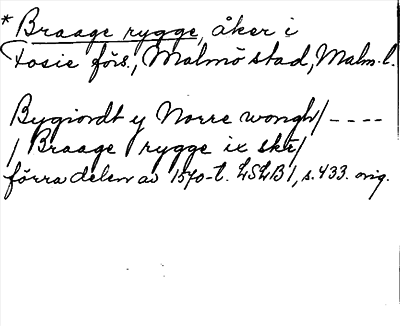 * Braage rygge, åker i
Fosie förs., Malmö stad, Malm. l.
Bygiordt y Norre wongh/----
/ Braage rygge ix skr/
förra delen av 1570-t. LSLB 1, s. 433. orig.